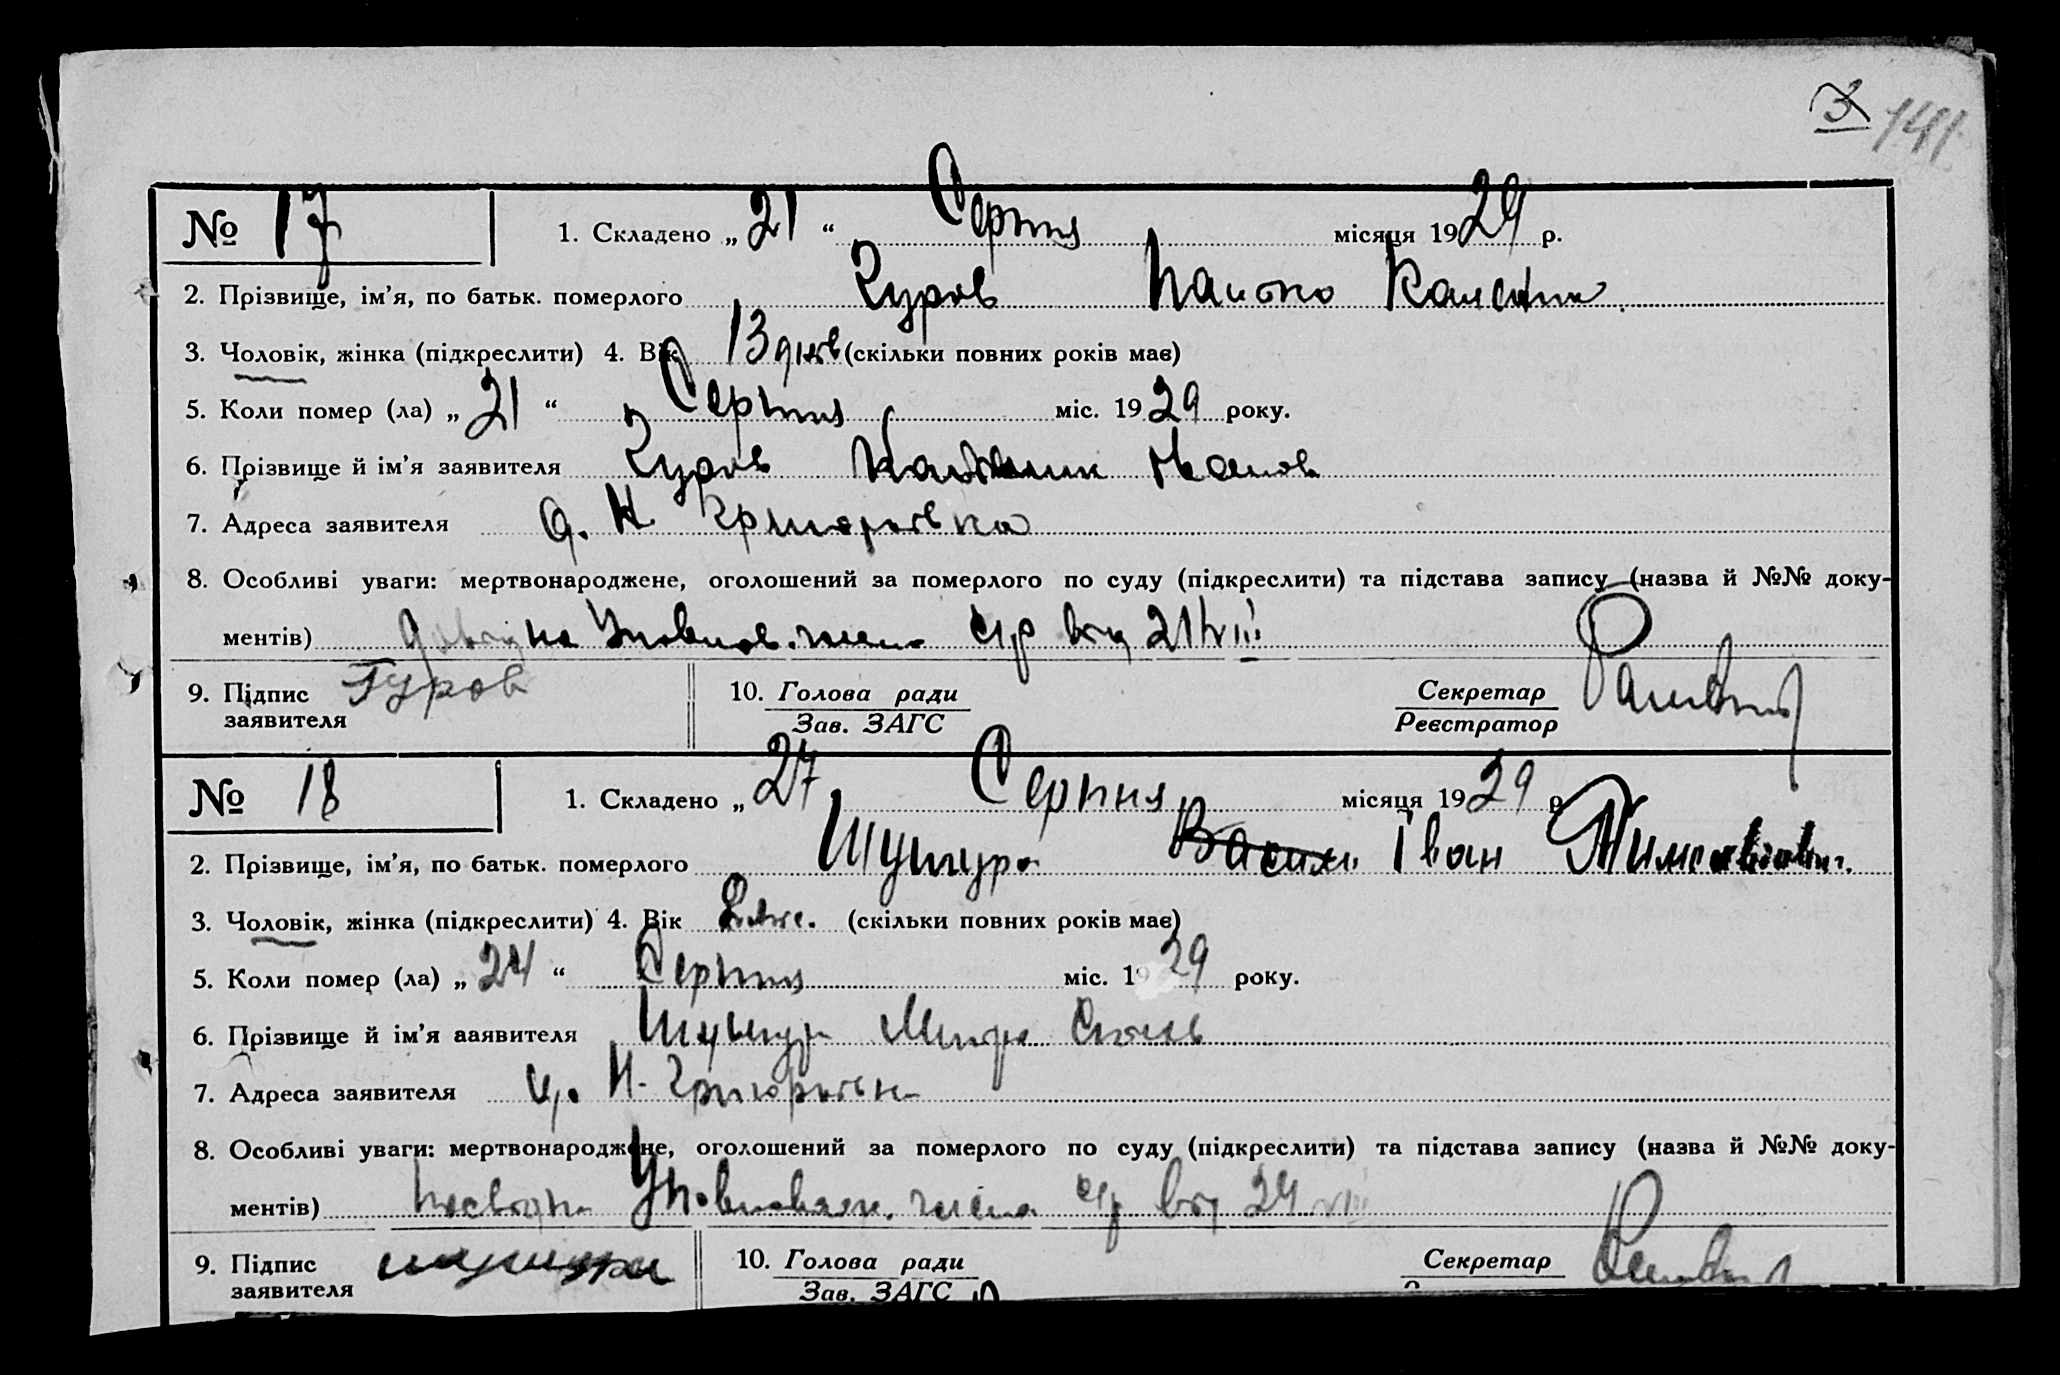 3 141
№ 17 1. Складено „ 21 “ Серпня місяця 1929 р.
2. Прізвище, ім’я, по батьк. померлого Гуров
3. Чоловік, жінка (підкреслити) 4. Вік 13 днів (скільки повних років має)
5. Коли помер (ла) „ 21 “ Серпня міс. 1929 року.
6. Прізвище й ім’я заявителя Гуров Іванов
7. Адреса заявителя с. Н. Григоровка
8. Особливі уваги: мертвонароджене, оголошений за померлого по суду (підкреслити) та підстава запису (назва й №№ доку-
ментів) Довідка Уповнов. с/р від 21/VIII
9. Підпис Гуров 10. Голова ради Секретар
заявителя Зав. ЗАГС Реєстратор
№ 18 1. Складено „ 27 Серпня місяця 1929 р.
2. Прізвище, ім’я, по батьк. померлого Шушура Василь Іван
3. Чоловік, жінка (підкреслити) 4. Вік (скільки повних років має)
5. Коли помер (ла) „ 24 “ Серпня міс. 1929 року.
6. Прізвище й ім’я ааявителя Шушура
7. Адреса заявителя с. Н. Григоровка
8. Особливі уваги: мертвонароджене, оголошений за померлого по суду (підкреслити) та підстава запису (назва й №№ доку-
ментів) Уповноваж. с/р від 24 VIII
9. Підпис Шушура 10. Голова ради Секретар
заявителя Зав. ЗАГС